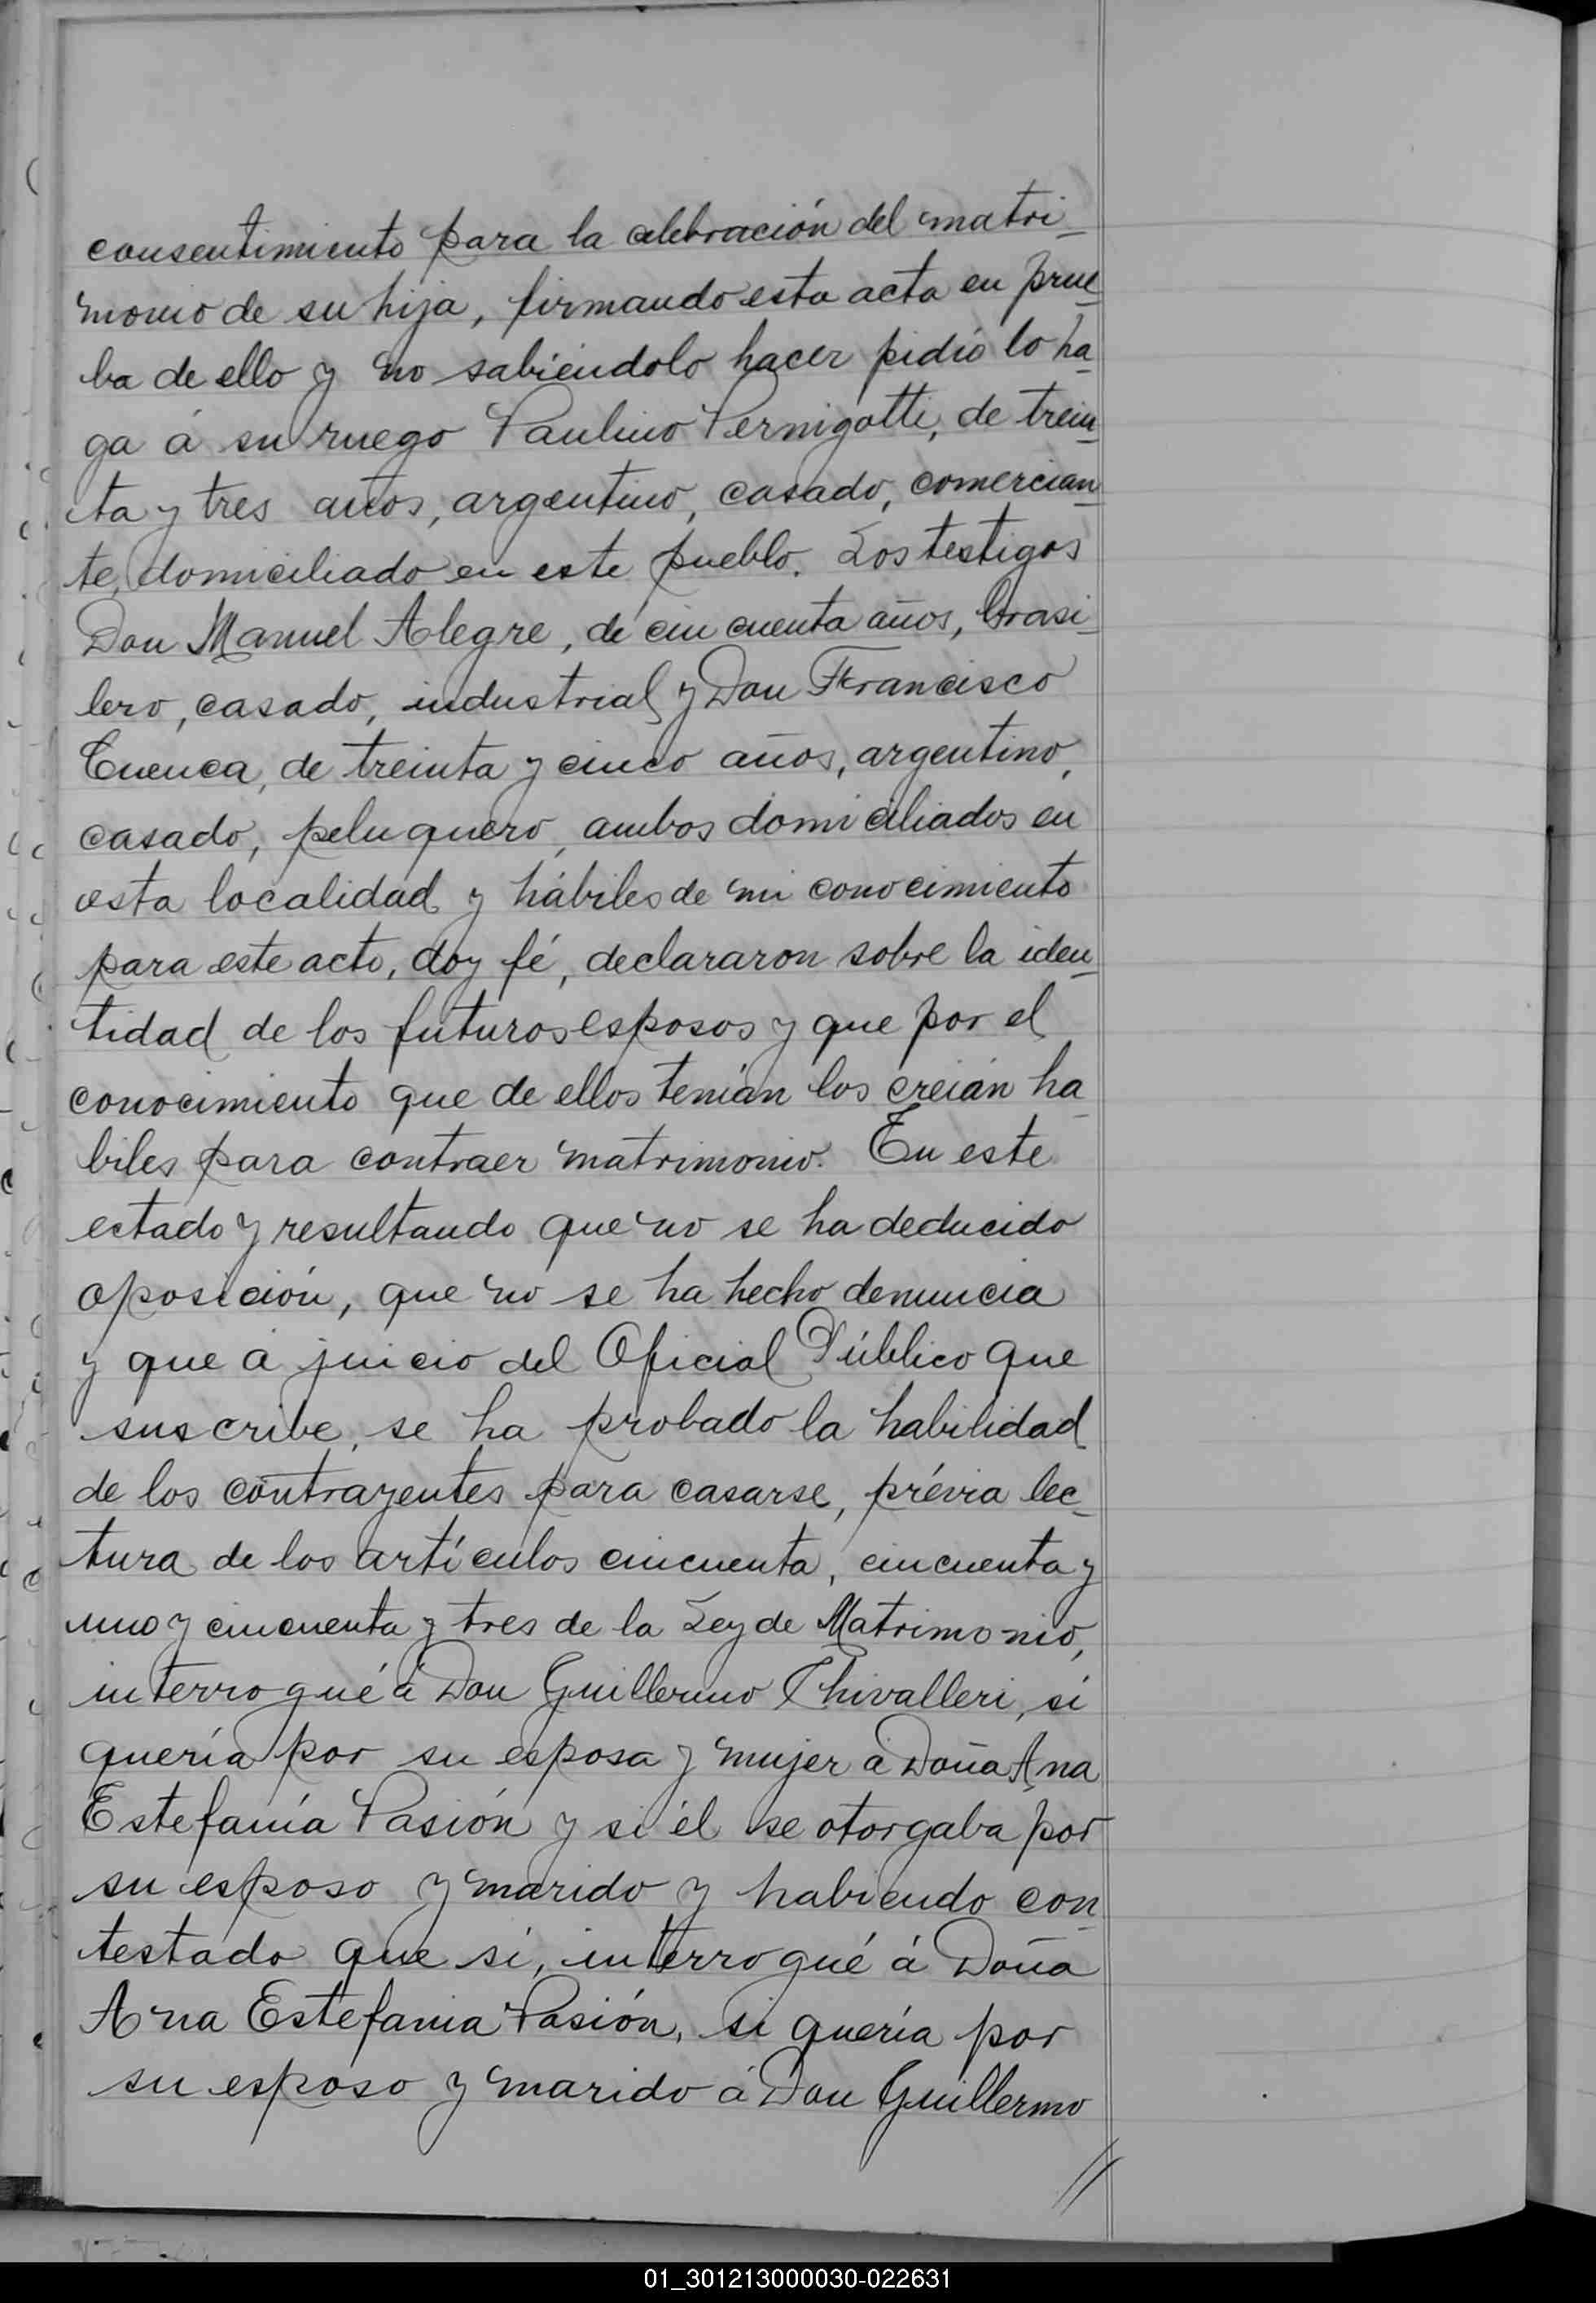 consentimiento para la celebración del matri_
monio de su hija, firmando esta acta en prue_
ba de ello y no sabiéndolo hacer pidió lo ha_
ga á su ruego Paulino Pernigotti, de trein_
ta y tres años, argentino, casado, comercian_
te, domiciliado en este pueblo. Los testigos
Don Manuel Alegre, de cincuenta años, brasi_
lero, casado, industrial y Don Francisco
Cuenca, de treinta y cinco años, argentino,
casado, peluquero, ambos domiciliados en
esta localidad y hábiles de mi conocimiento
para este acto, doy fé, declararon sobre la iden_
tidad de los futuros esposos y que por el
conocimiento que de ellos tenían los creían ha_
biles para contraer matrimonio. En este
estado y resultando que no se ha deducido
oposición, que no se ha hecho denuncia
y que á juicio del Oficial Público que
suscribe, se ha probado la habilidad
de los contrayentes para casarse, prévia lec_
tura de los artículos cincuenta, cincuenta y
uno y cincuenta y tres de la Ley de Matrimonio,
interrogué á Don Guillermo Chivalleri, si
quería por su esposa y mujer á Doña Ana
Estefanía Pasión y si él se otorgaba por
su esposo y marido y habiendo con_
testado que si, interrogué á Doña
Ana Estefania Pasión, si quería por
su esposo y marido á Don Guillermo
//
01_301213000030-022631